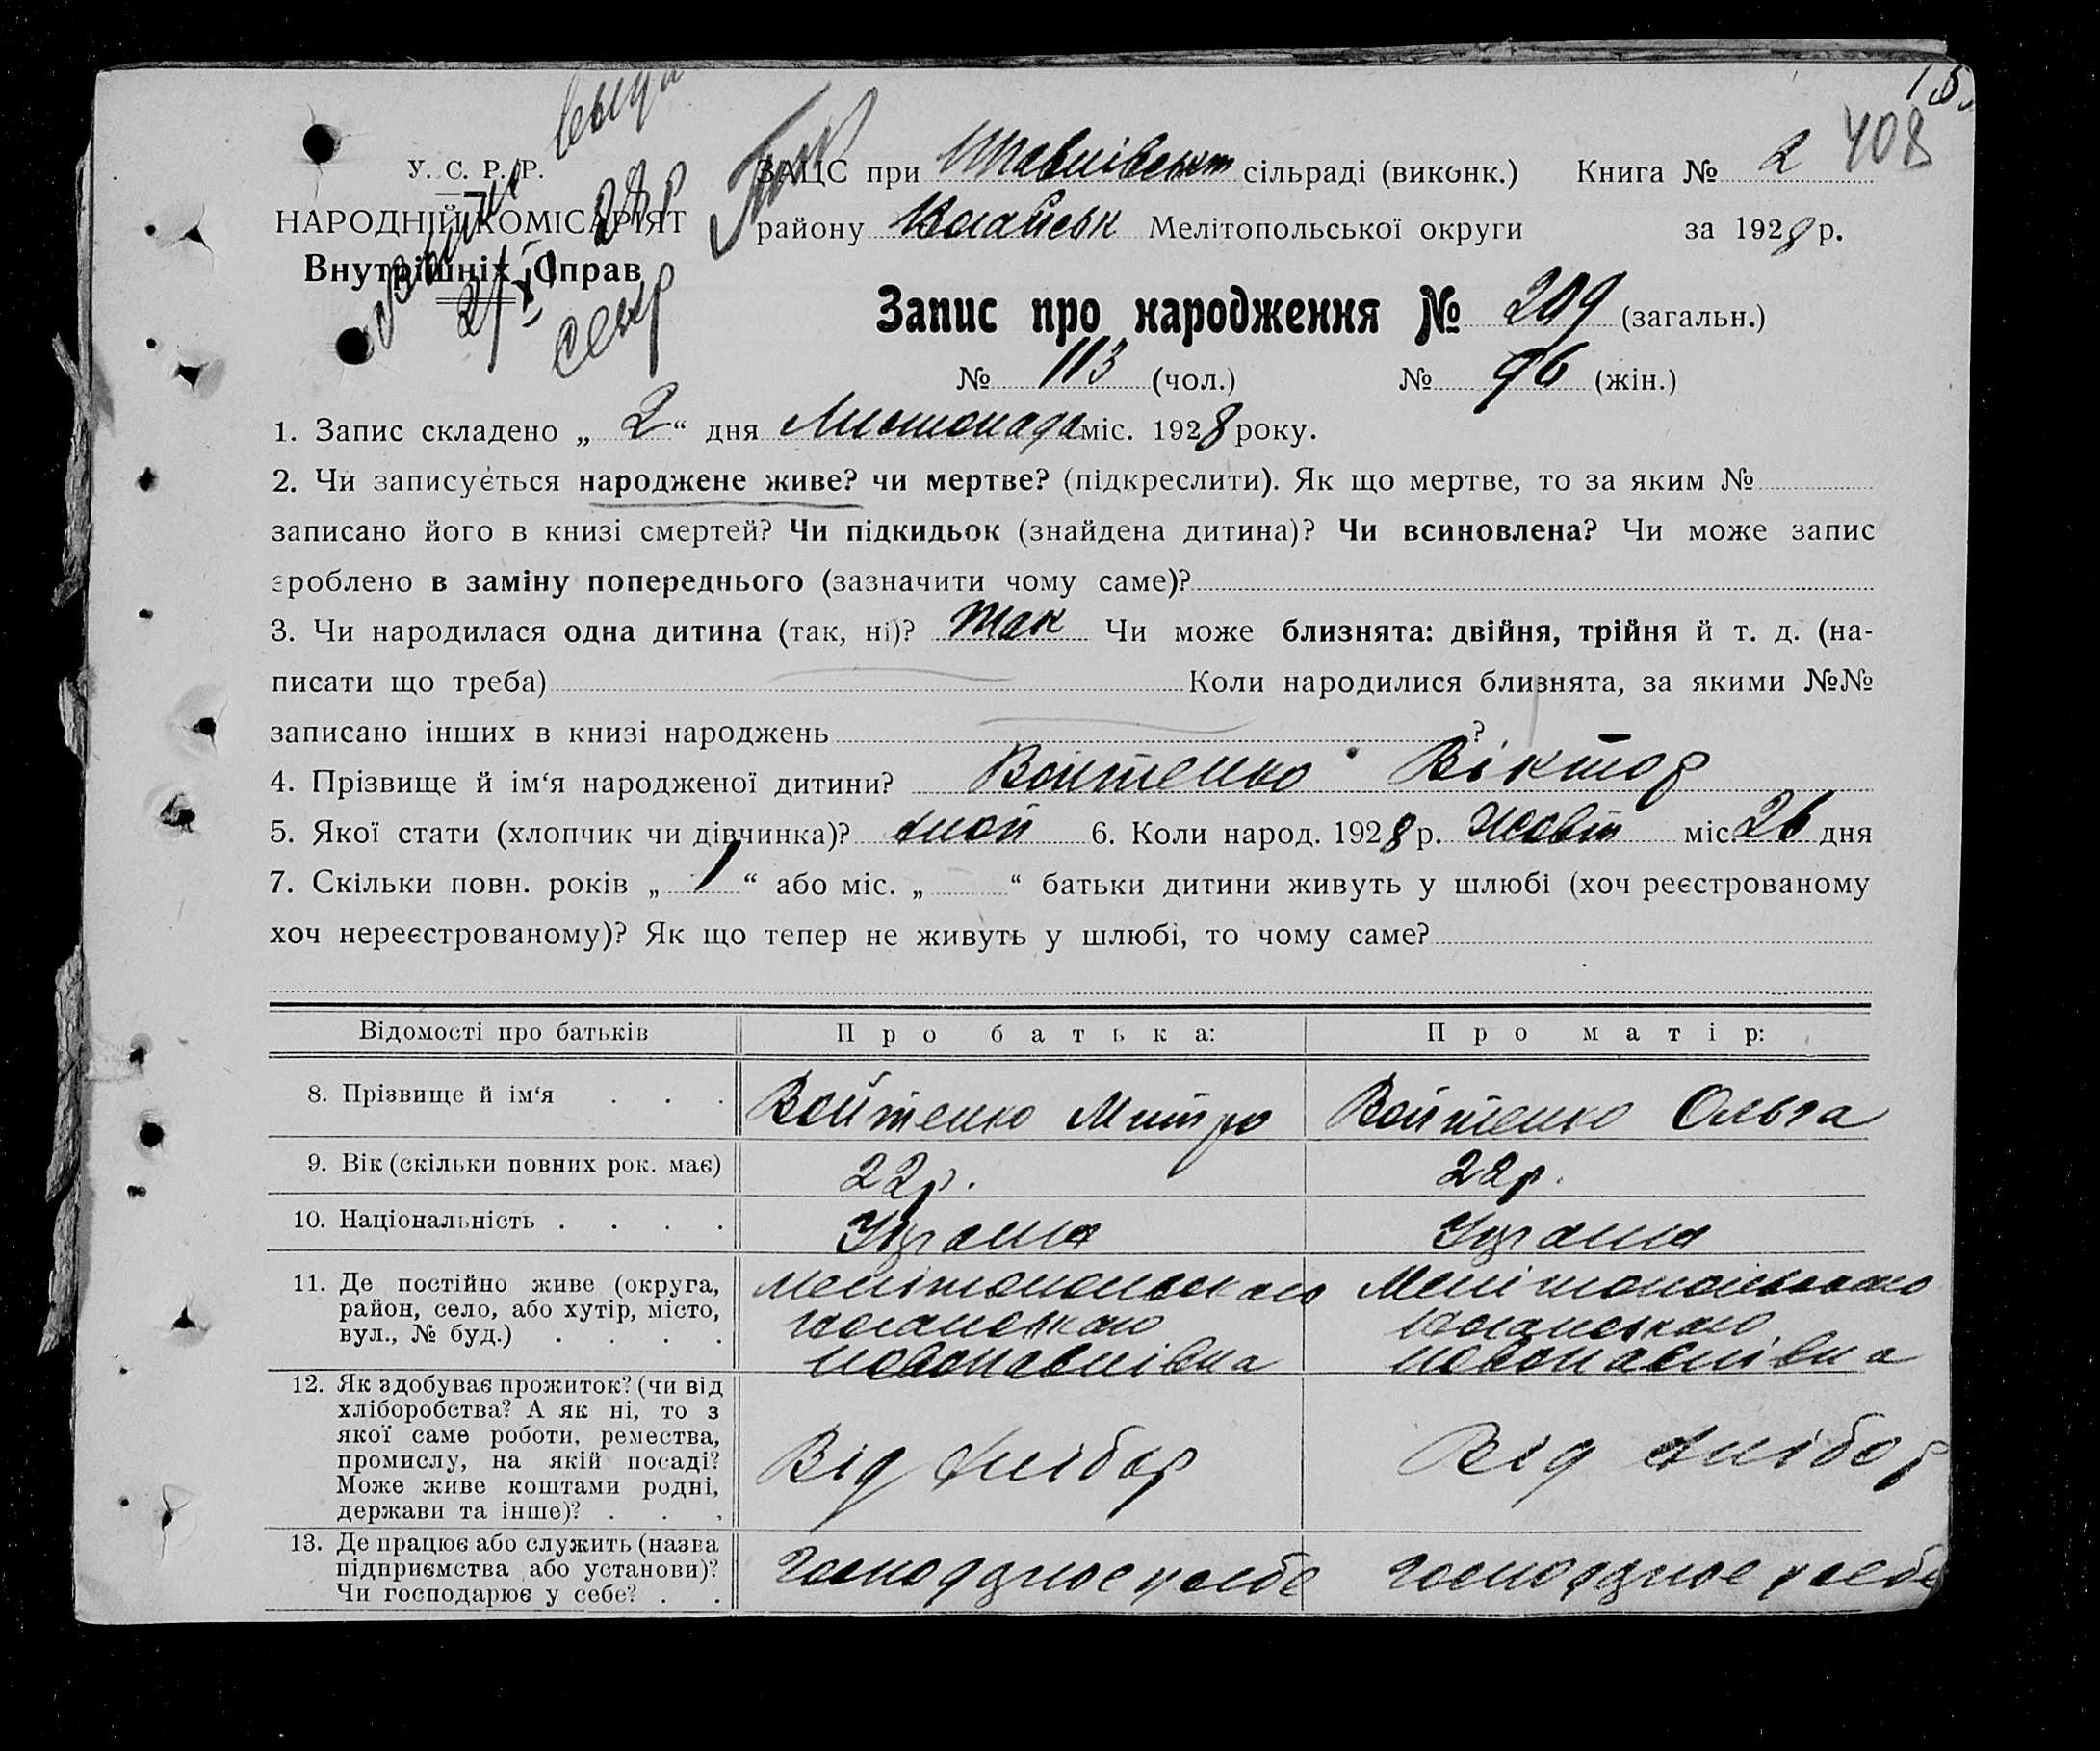 15.
408
У. С. Р. Р.
НАРОДНІЙ КОМІСАРІЯТ
Внутрішніх Справ
ЗАЦС при сільраді (виконк.) Книга № 2
району Мелітопольської округи за 1928 р.
Запис про народження № 209 (загальн.)
№ 113 (чол.) № 96 (жін.)
1. Запис складено „ 2 “ дня Листопада міс. 1928 року.
2. Чи записується народжене живе? чи мертве? (підкреслити). Як що мертве, то за яким №
записано його в книзі смертей? Чи підкидьок (знайдена дитина)? Чи всиновлена? Чи може запис
зроблено в заміну попереднього (зазначити чому саме)?
3. Чи народилася одна дитина (так, ні)? Так Чи може близнята: двійня, трійня й т. д. (на-
писати що треба) Коли народилися близнята, за якими №№
записано інших в книзі народжень ?
4. Прізвище й ім‘я народженої дитини? Войтенко Віктор
5. Якої стати (хлопчик чи дівчинка)? хлоп 6. Коли народ. 1928 р. Жовт міс. 26 дня
7. Скільки повн. років „ 1 “ або міс. „ “ батьки дитини живуть у шлюбі (хоч реєстрованому
хоч нереєстрованому)? Як що тепер не живуть у шлюбі, то чому саме?
Відомості про батьків Про батька: Про матір:
8. Прізвище й ім‘я . . . Войтенко Митро Войтенко Ольга
9. Вік (скільки повних рок. має) 22 р. 22 р.
10. Національність . . . . Украина Украина
11. Де постійно живе (округа,
район, село, або хутір, місто,
вул., № буд.) . . . .
Мелітопольскаго Мелітопольскаго
новопавлівка новопавлівка
12. Як здобуває прожиток? (чи від
хліборобства? А як ні, то з
якої саме роботи, ремества,
промислу, на якій посаді?
Може живе коштами родні,
держави та інше)? . . .
Від хлібор Від хлібор
13. Де працює або служить (назва
підприємства або установи)?
Чи господарює у себе? . .